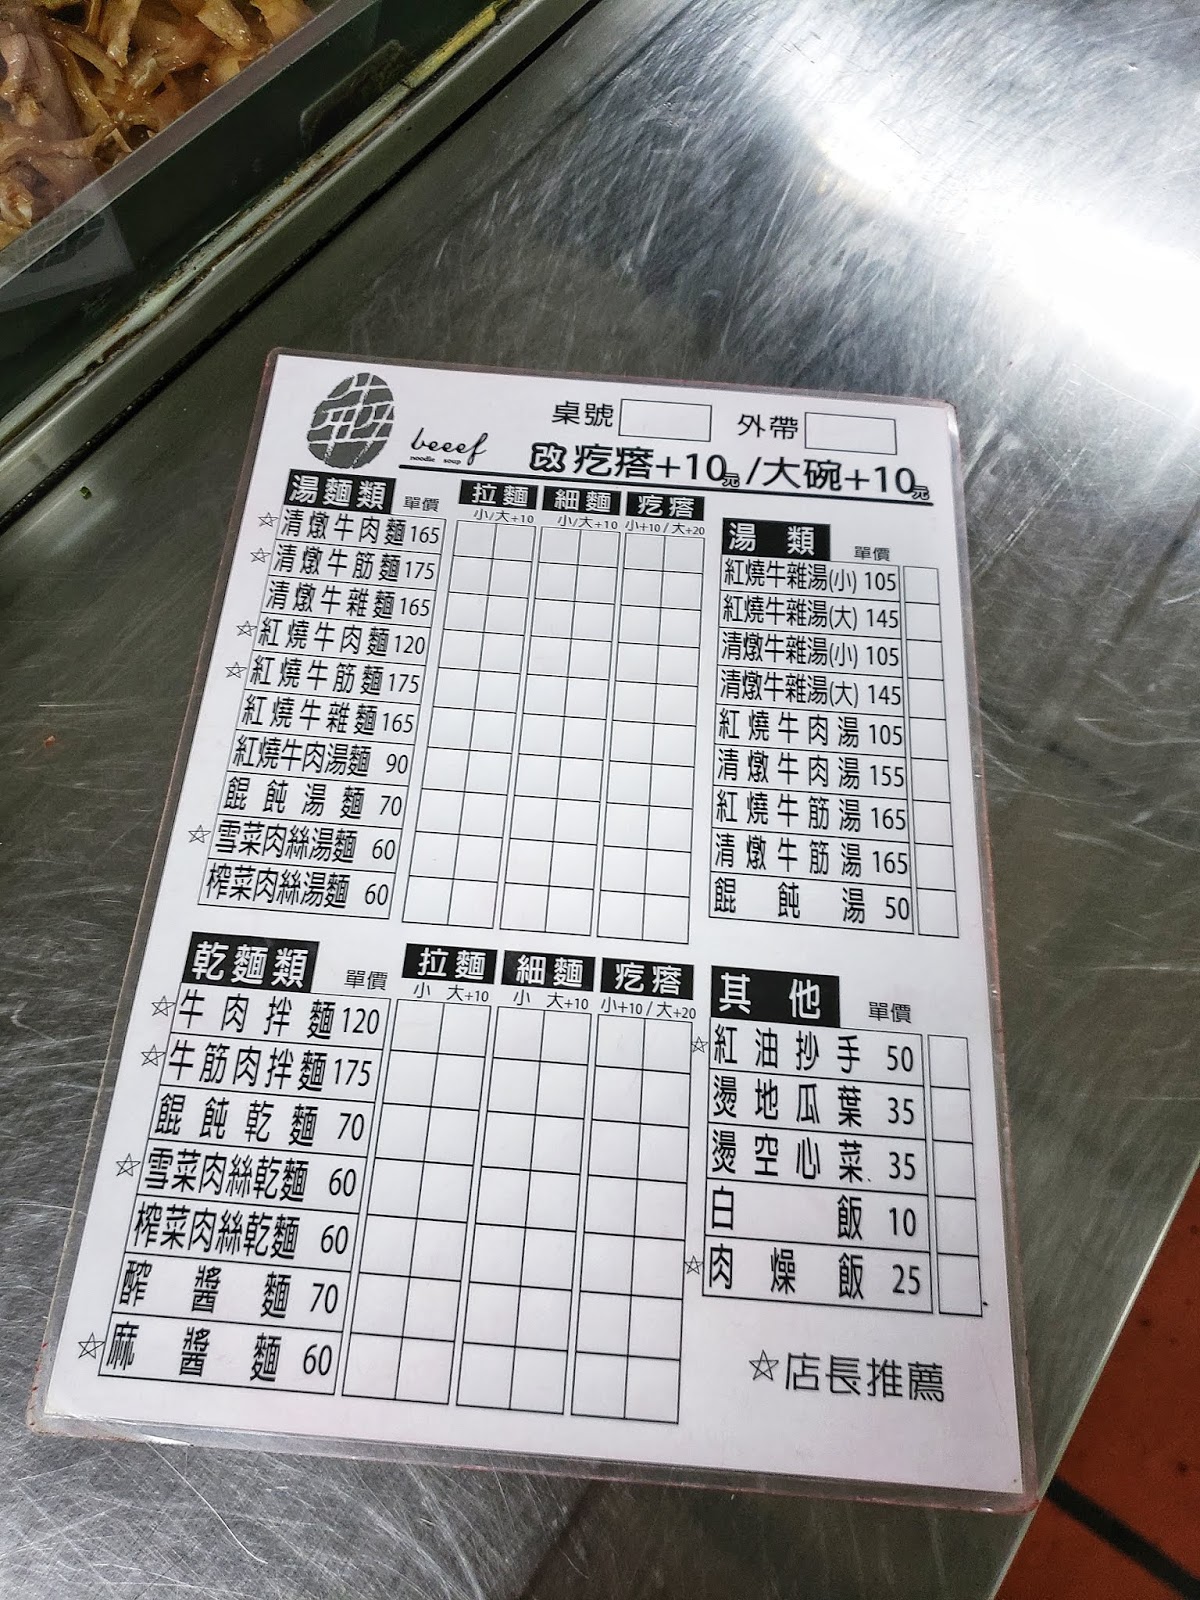 桌號 外帶
beeef
noodle soup
改 疙瘩+10元/大碗+10元
湯麵類 單價 拉麵 細麵 疙瘩
小/大+10 小/大+10 小+10/大+20
☆清燉牛肉麵 165
☆清燉牛筋麵 175
清燉牛雜麵 165
☆紅燒牛肉麵 120
☆紅燒牛筋麵 175
紅燒牛雜麵 165
紅燒牛肉湯麵 90
餛飩湯麵 70
☆雪菜肉絲湯麵 60
榨菜肉絲湯麵 60
湯類 單價
紅燒牛雜湯(小) 105
紅燒牛雜湯(大) 145
清燉牛雜湯(小) 105
清燉牛雜湯(大) 145
紅燒牛肉湯 105
清燉牛肉湯 155
紅燒牛筋湯 165
清燉牛筋湯 165
餛飩湯 50
乾麵類 單價 拉麵 細麵 疙瘩
小 大+10 小 大+10 小+10/大+20
☆牛肉拌麵 120
☆牛筋肉拌麵 175
餛飩乾麵 70
☆雪菜肉絲乾麵 60
榨菜肉絲乾麵 60
醡醬麵 70
☆麻醬麵 60
其他 單價
☆紅油抄手 50
燙地瓜葉 35
燙空心菜 35
白飯 10
☆肉燥飯 25
☆店長推薦